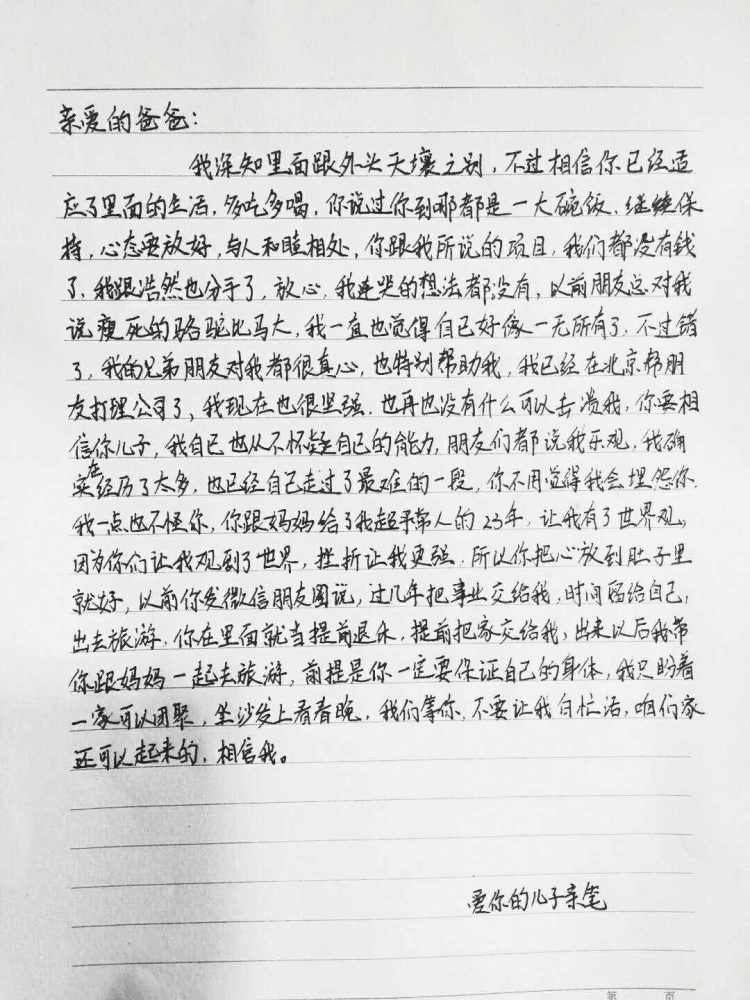 亲爱的爸爸：
我深知里面跟外头天壤之别，不过相信你已经适
应了里面的生活，多吃多喝，你说过你到哪都是一大碗饭，继续保
持，心态要放好，与人和睦相处，你跟我所说的项目，我们都没有钱
了，我跟浩然也分手了，放心，我连哭的想法都没有，以前朋友总对我
说瘦死的骆驼比马大，我一直也觉得自己好像一无所有了，不过错
了，我的兄弟朋友对我都很真心，也特别帮助我，我已经在北京帮朋
友打理公司了，我现在也很坚强，也再也没有什么可以击溃我，你要相
信你儿子，我自己也从不怀疑自己的能力，朋友们都说我乐观，我确
实在经历了太多，也已经自己走过了最难的一段，你不用觉得我会埋怨你，
我一点也不怪你，你跟妈妈给了我超乎常人的23年，让我有了世界观，
因为你们让我观到了世界，挫折让我更强，所以你把心放到肚子里
就好，以前你发微信朋友圈说，过几年把事业交给我，时间留给自己，
出去旅游，你在里面就当提前退休，提前把家交给我，出来以后我带
你跟妈妈一起去旅游，前提是你一定要保证自己的身体，我只盼着
一家可以团聚，坐沙发上看春晚，我们等你，不要让我白忙活，咱们家
还可以起来的，相信我。
爱你的儿子亲笔
第 页